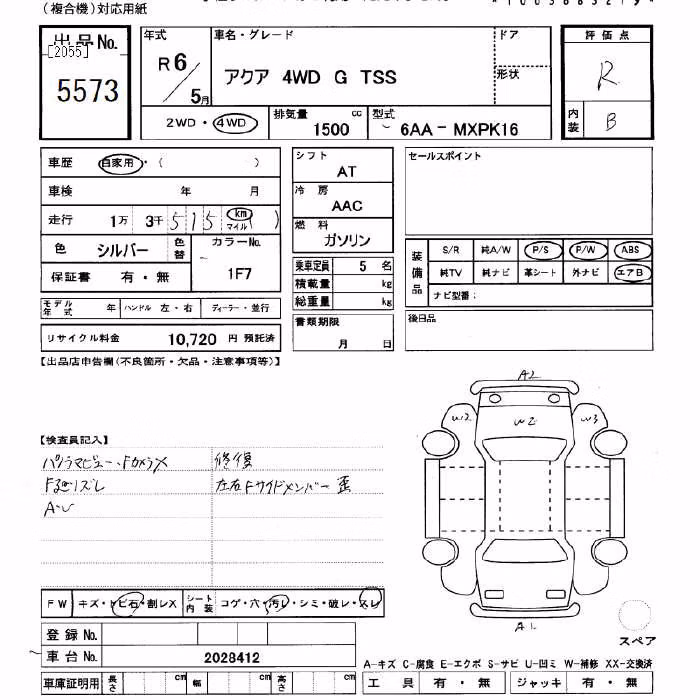 (複合機)対応用紙
*1003683219*
出品No.
[2055]
5573
年式
R6/5月
車名・グレード
アクア 4WD G TSS
ドア
形状
評価点
R
内装
B
2WD・4WD
排気量
1500 cc
型式
6AA－MXPK16
車歴 自家用・( )
車検 年 月
走行 1万 3千 515 km マイル ( )
色 シルバー 色替
カラーNo.
1F7
保証書 有・無
モデル年式 年 ハンドル 左・右 ディーラー・並行
リサイクル料金 10,720 円 預託済
シフト
AT
冷房
AAC
燃料
ガソリン
乗車定員 5 名
積載量 kg
総重量 kg
書類期限
月 日
セールスポイント
装備品
S/R 純A/W P/S P/W ABS
純TV 純ナビ 革シート 外ナビ エアB
ナビ型番：
後日品
【出品店申告欄(不良箇所・欠品・注意事項等)】
【検査員記入】
パノラマビュー・Fカメラ×
修復
左右Fサイドメンバー 歪
A2
W2
W2
W3
A1
スペア
FW キズ・トビ石・割レX
シート内装 コゲ・穴・汚レ・シミ・破レ・スレ
登録No.
車台No. 2028412
車庫証明用 長さ cm 幅 cm 高さ cm
A-キズ C-腐食 E-エクボ S-サビ U-凹ミ W-補修 XX-交換済
工具 有・無 ジャッキ 有・無